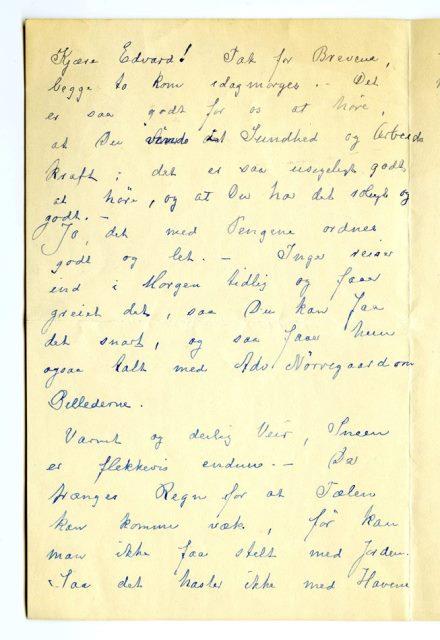 Kjære Edvard! Tak for Brevene,
begge to kom idagmorges. – Det
er saa godt for os at höre,
at Du vinder Sundhed og Arbeids
kraft; det er saa usigeligt godt
at höre, og at Du har det roligt og
godt. –
Ja, det med Pengene ordnes
godt og let. – Inger reiser
ind i Morgen tidlig og faar
greiet det, saa Du kan faa
det snart, og saa faar hun
ogsaa talt med Adv Nörregaard om
Billederne.
Varmt og deilig Veir, Sneen
er flekkevis endnu. – Der
trænges Regn for at Tælen
kan komme væk, för kan
man ikke faa stelt med Jorden.
Saa det haster ikke med Havene